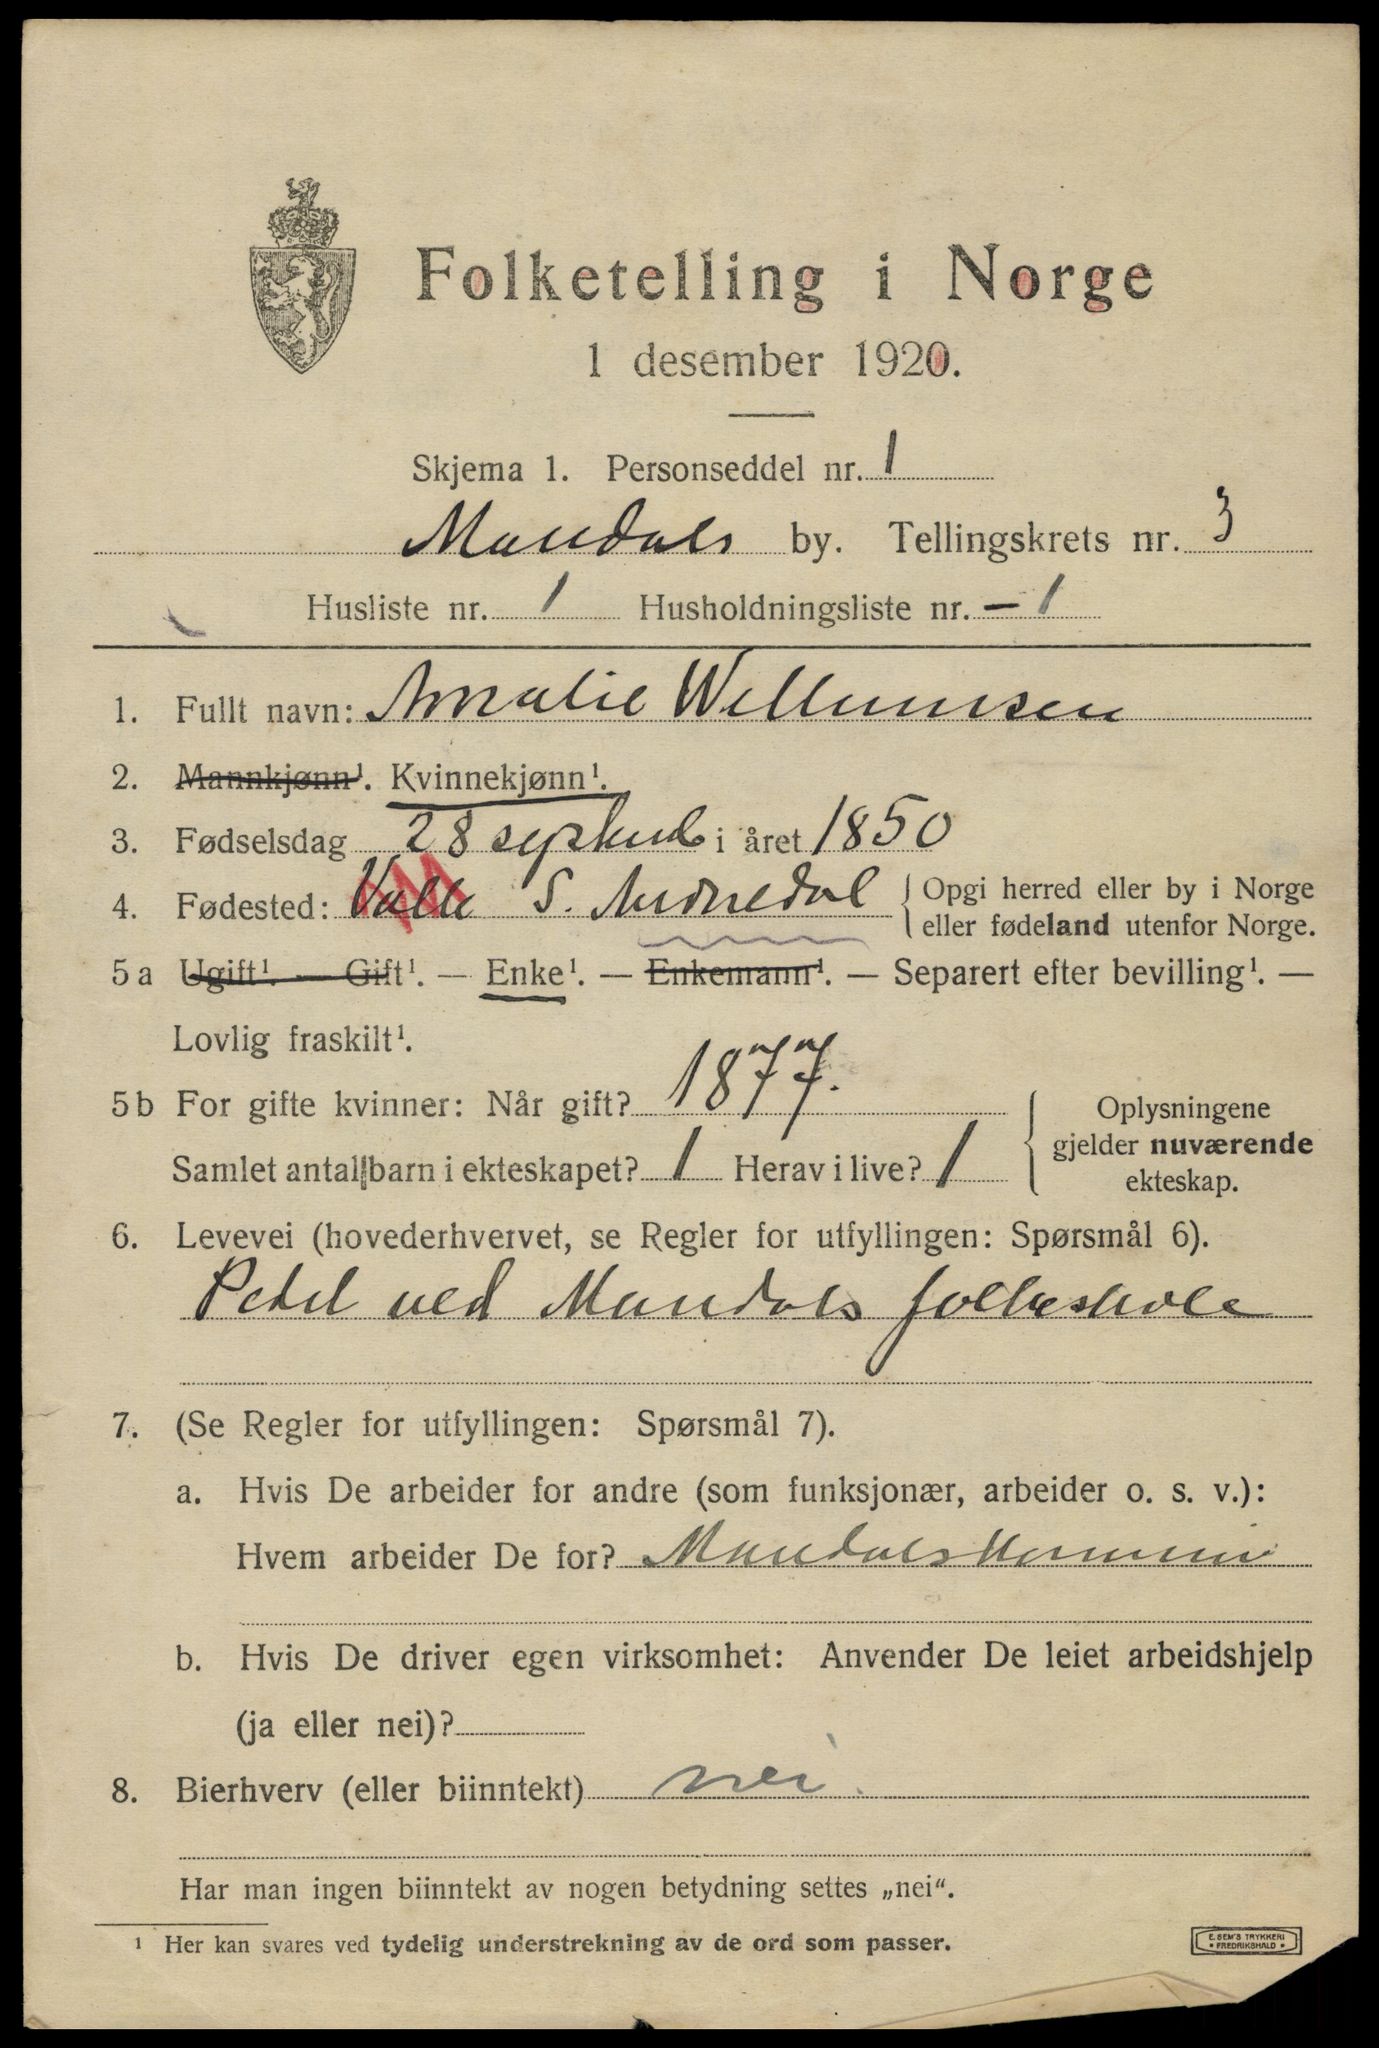 Folketelling i Norge
1 desember 1920.
Skjema 1. Personseddel nr. 1
Mandals by. Tellingskrets nr. 3
Husliste nr. 1 Husholdningsliste nr. – 1
1. Fullt navn: Amalie Wellumsen
2. Mannkjønn¹. Kvinnekjønn¹.
3. Fødselsdag 28 septemb i året 1850
4. Fødested: Valle S. Audnedal { Opgi herred eller by i Norge
eller fødeland utenfor Norge.
5 a Ugift¹. — Gift¹. — Enke¹. — Enkemann¹. — Separert efter bevilling¹. —
Lovlig fraskilt¹.
5 b For gifte kvinner: Når gift? 1877.
Samlet antall barn i ekteskapet? 1 Herav i live? 1
Oplysningene
gjelder nuværende
ekteskap.
6. Levevei (hovederhvervet, se Regler for utfyllingen: Spørsmål 6).
Pedel ved Mandals folkeskole
7. (Se Regler for utfyllingen: Spørsmål 7).
a. Hvis De arbeider for andre (som funksjonær, arbeider o. s. v.):
Hvem arbeider De for? Mandals
b. Hvis De driver egen virksomhet: Anvender De leiet arbeidshjelp
(ja eller nei)?
8. Bierhverv (eller biinntekt) nei.
Har man ingen biinntekt av nogen betydning settes „nei“.
¹ Her kan svares ved tydelig understrekning av de ord som passer.
E. SEM'S TRYKKERI
• FREDRIKSHALD •